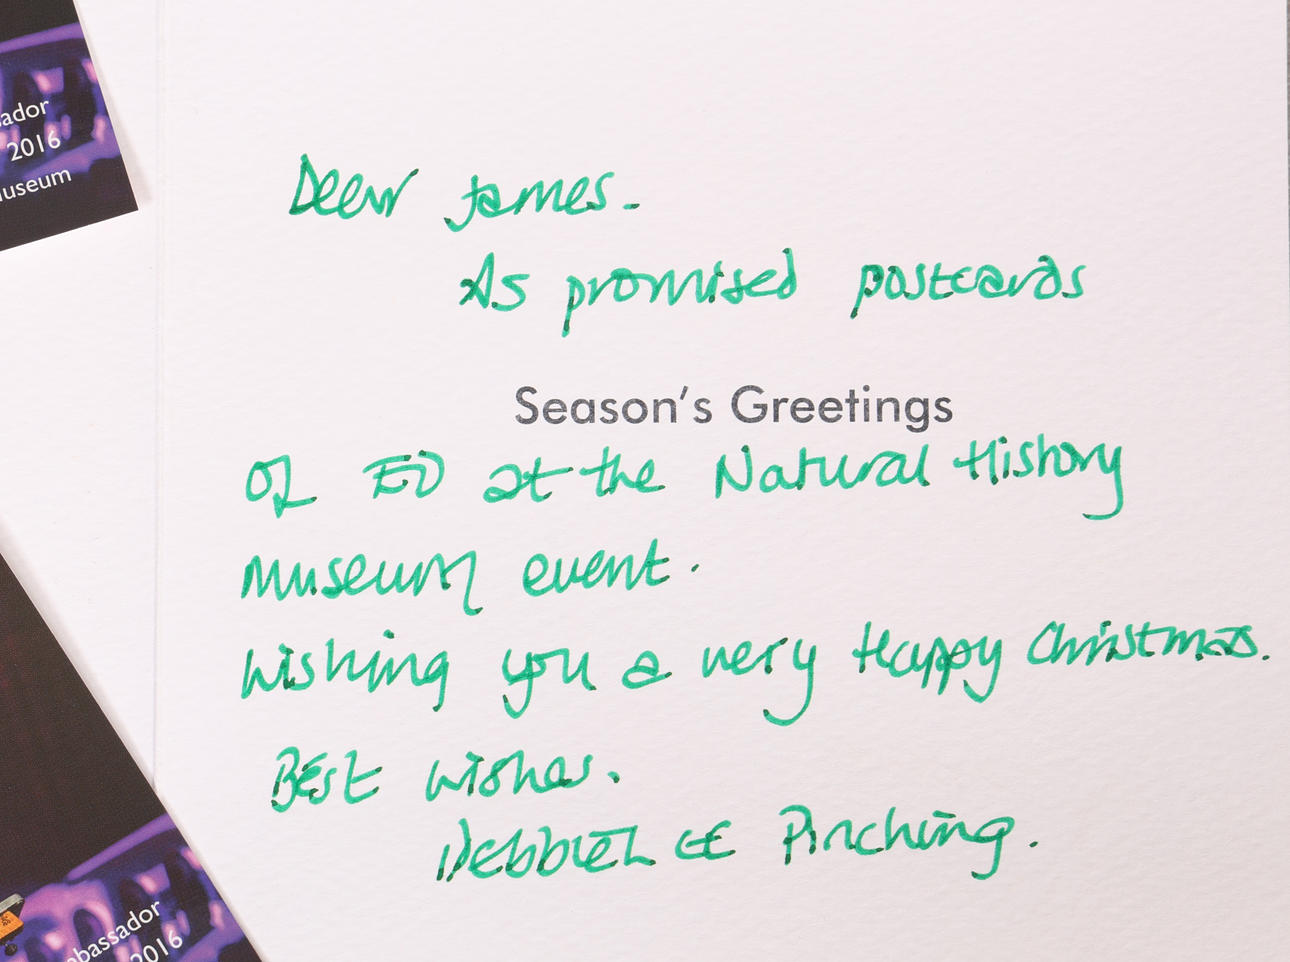 ador
2016
useum
Dear James.
As promised postcards
Season's Greetings
Of ED at the Natural History
Museum event.
Wishing you a very Happy Christmas.
Best wishes.
Pinching.
bassador
2016